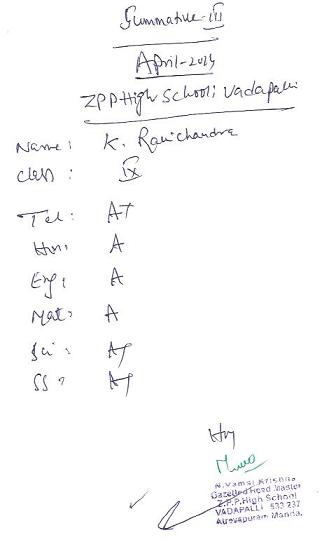 Summative-III
April-2014
ZPP High School; Vadapalli
Name: K. Ravichandra
Class: IX
Tel: A+
Hin: A
Eng: A
Mat: A
Sci: A+
SS: A+
N.Vamsi Krishna
Gazetted Head Master
Z.P.P.High School
VADAPALLI 533 237
Atreyapuram Manda.